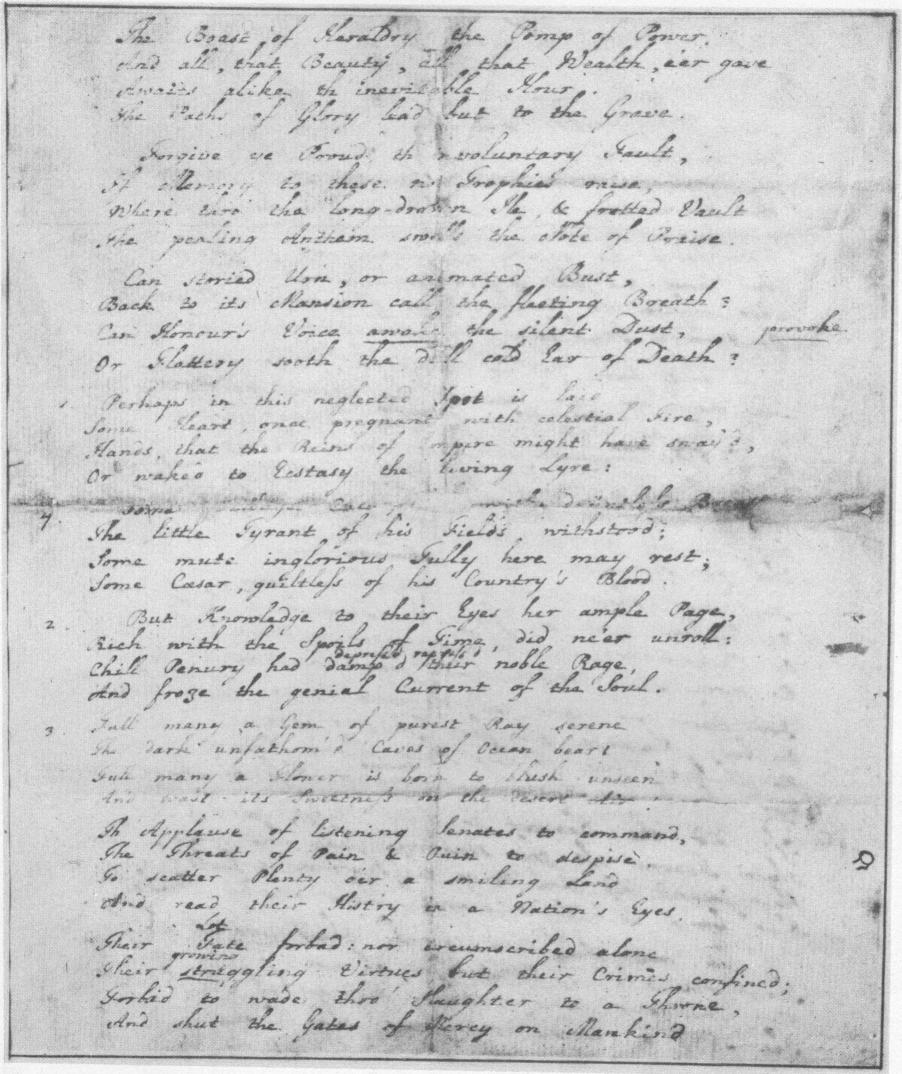 The Boast of Heraldry the Pomp of Power,
And all, that Beauty, all that Wealth, e'er gave
Awaits alike th' inevitable Hour.
The Paths of Glory lead but to the Grave.
Forgive ye Proud th' involuntary Fault,
If Memory to these no Trophies raise,
Where thro' the long-drawn Ile, & fretted Vault
The pealing Anthem swells the Note of Praise.
Can storied Urn, or animated Bust,
Back to its Mansion call the fleeting Breath?
Can Honour's Voice awake the silent Dust, provoke
Or Flattery sooth the dull cold Ear of Death?
1. Perhaps in this neglected Spot is laid
Some Heart, once pregnant with celestial Fire,
Hands, that the Reins of Empire might have sway'd,
Or waked to Ecstasy the living Lyre:
4. Some with dauntless Breast
The little Tyrant of his Fields withstood;
Some mute inglorious Tully here may rest;
Some Cæsar, guiltless of his Country's Blood.
2. But Knowledge to their Eyes her ample Page,
Rich with the Spoils of Time, did ne'er unroll:
depress'd repress'd
Chill Penury had damp'd their noble Rage,
And froze the genial Current of the Soul.
3 Full many a Gem of purest Ray serene
The dark unfathom'd Caves of Ocean bear:
Full many a Flower is born to blush unseen
And wast its Sweetness on the desert Air.
Th' Applause of listening Senates to command,
The Threats of Pain & Ruin to despise,
To scatter Plenty o'er a smiling Land
And read their Histry in a Nation's Eyes,
Lot
Their Fate forbad: nor circumscribed alone
growing
Their struggling Virtues but their Crimes confined;
Forbad to wade thro' Slaughter to a Throne,
And shut the Gates of Mercy on Mankind